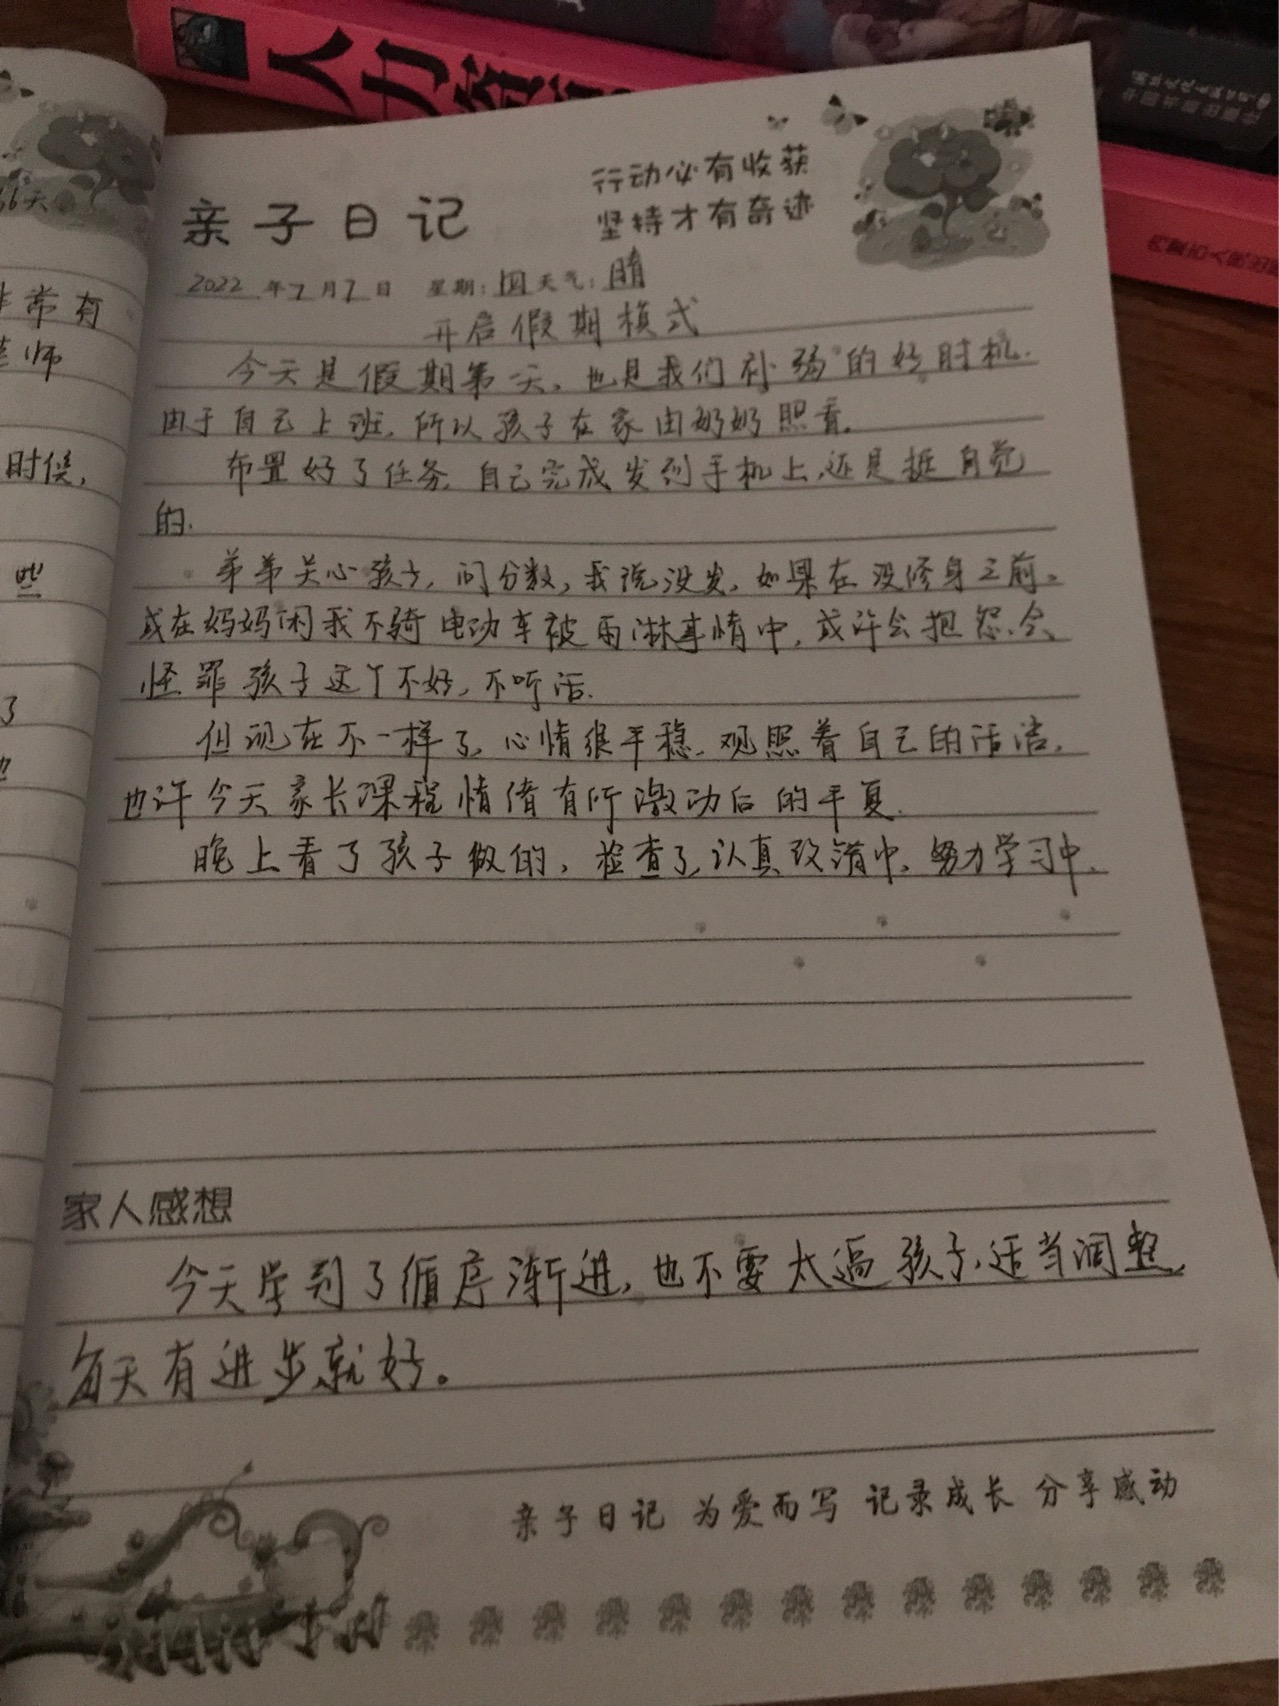 人力资
66天
非常有
老师
时候,
些
了
亲子日记
行动必有收获
坚持才有奇迹
2022 年 7 月 7 日 星期: 四 天气: 晴
开启假期模式
今天是假期第一天,也是我们补弱的好时机.
由于自己上班,所以孩子在家由奶奶照看.
布置好了任务,自己完成发到手机上,还是挺自觉
的.
弟弟关心孩子,问分数,我说没发,如果在没修身之前。
或在妈妈闲我不骑电动车被雨淋事情中,或许会抱怨,会
怪罪孩子这个不好,不听话.
但现在不一样了,心情很平稳,观照着自己的活法,
也许今天家长课程情绪有所激动后的平复.
晚上看了孩子做的,检查了,认真改错中,努力学习中.
家人感想
今天学到了循序渐进,也不要太逼孩子,适当调整,
每天有进步就好。
亲子日记 为爱而写 记录成长 分享感动